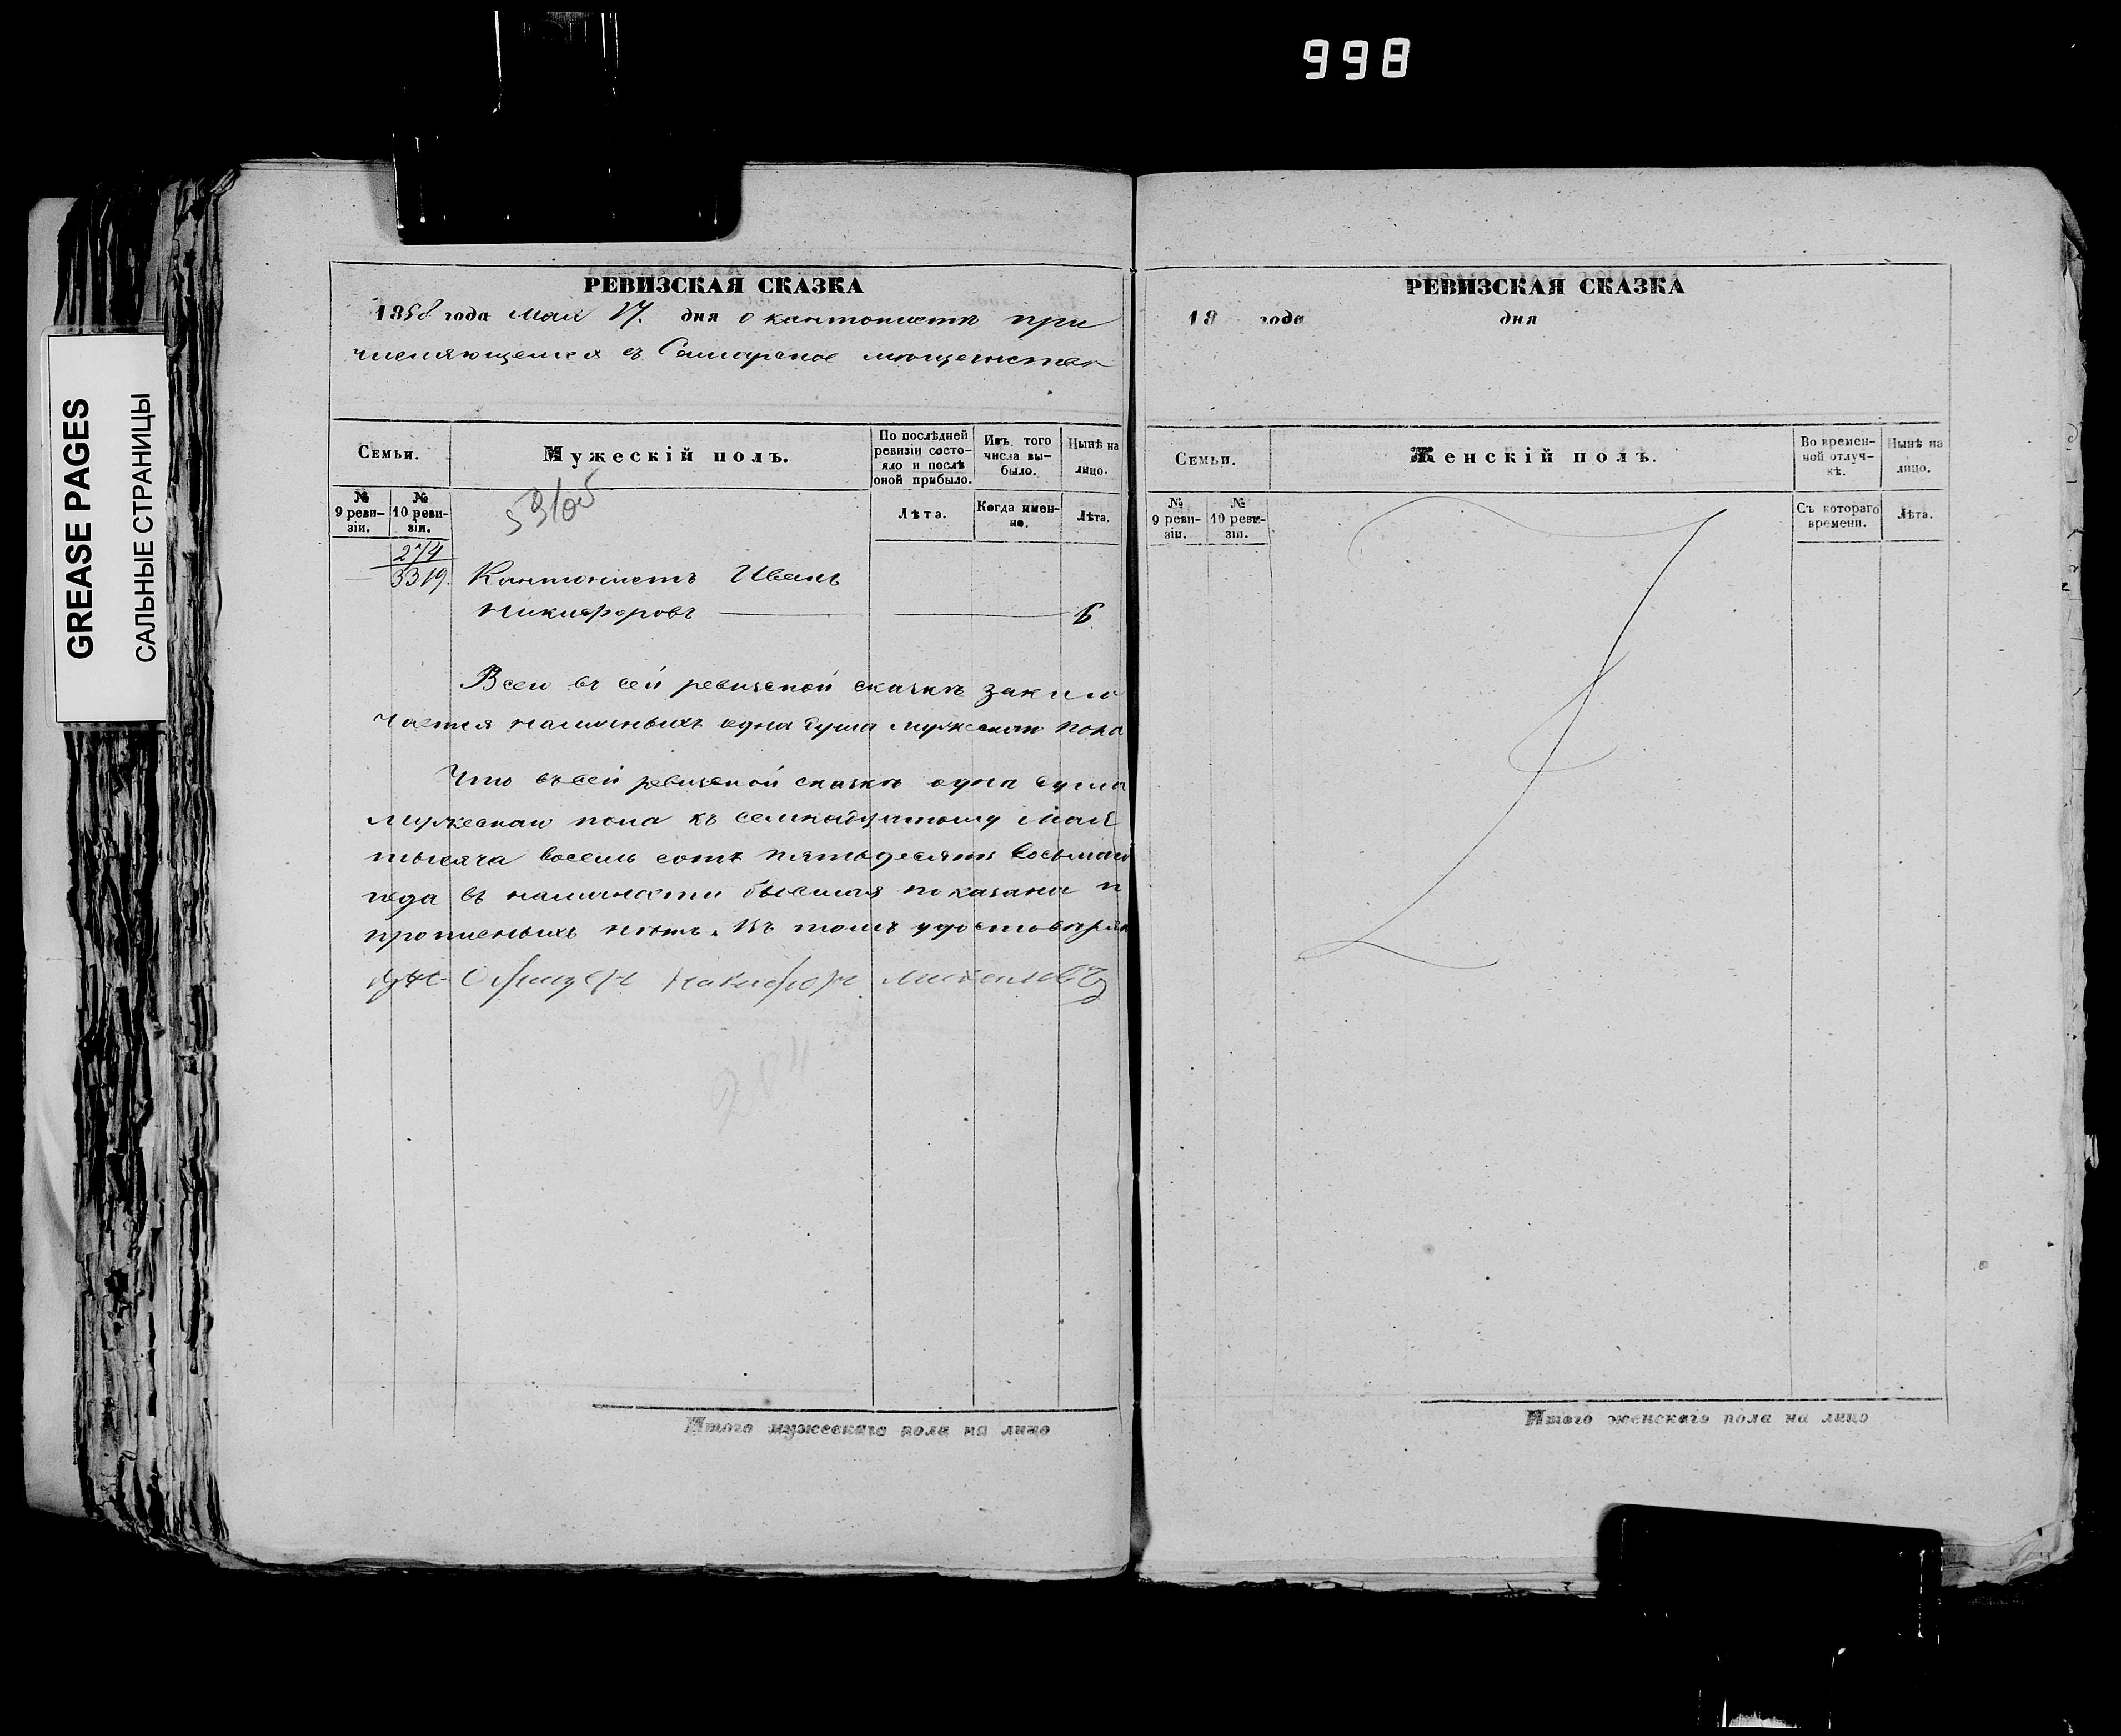 998
GREASE PAGES
САЛЬНЫЕ СТРАНИЦЫ
РЕВИЗСКАЯ СКАЗКА
1858 года Мая 17. дня о кантонисте при
числяющемся въ Самарское мещанство
Семьи.
Мужескій полъ.
По послѣдней ревизіи состояло и послѣ оной прибыло.
Изъ того числа выбыло.
Нынѣ на лицо.
№ 9 ревизіи.
№ 10 ревизіи.
Лѣта.
Когда именно.
Лѣта.
53/05
274
3319.
Кантонистъ Иванъ
Никифоровъ 6
Всего въ сей ревизской сказкѣ заклю
чается наличныхъ одна душа мужескаго пола
Что въ сей ревизской сказкѣ одна душа
мужескаго пола къ семнадцатому Мая
тысяча восемь сотъ пятьдесятъ восьмаго
года въ наличности бывшая показана и
прописныхъ нѣтъ. Въ томъ удостоверяю
Никифоръ
Итого мужескаго пола на лицо
РЕВИЗСКАЯ СКАЗКА
18 года дня
Семьи.
Женскій полъ.
Во временной отлучкѣ.
Нынѣ на лицо.
№ 9 ревизіи.
№ 10 ревизіи.
Съ котораго времени.
Лѣта.
Итого женскаго пола на лицо